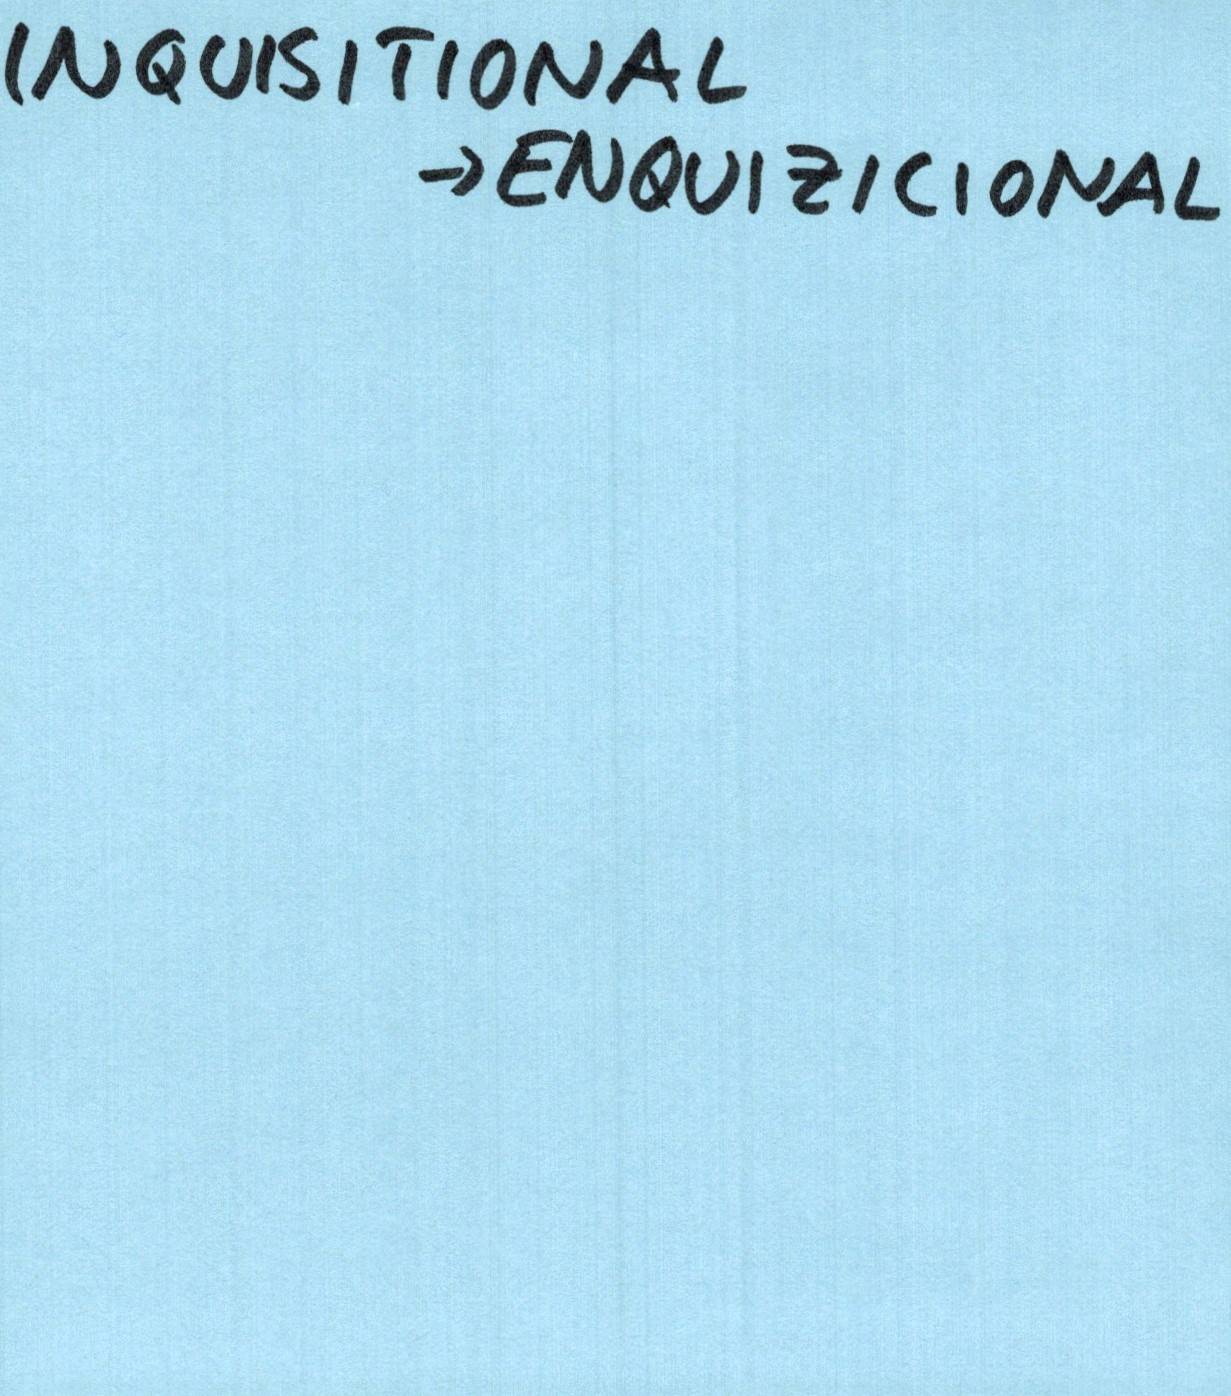 INQUISITIONAL
→ENQUIZICIONAL